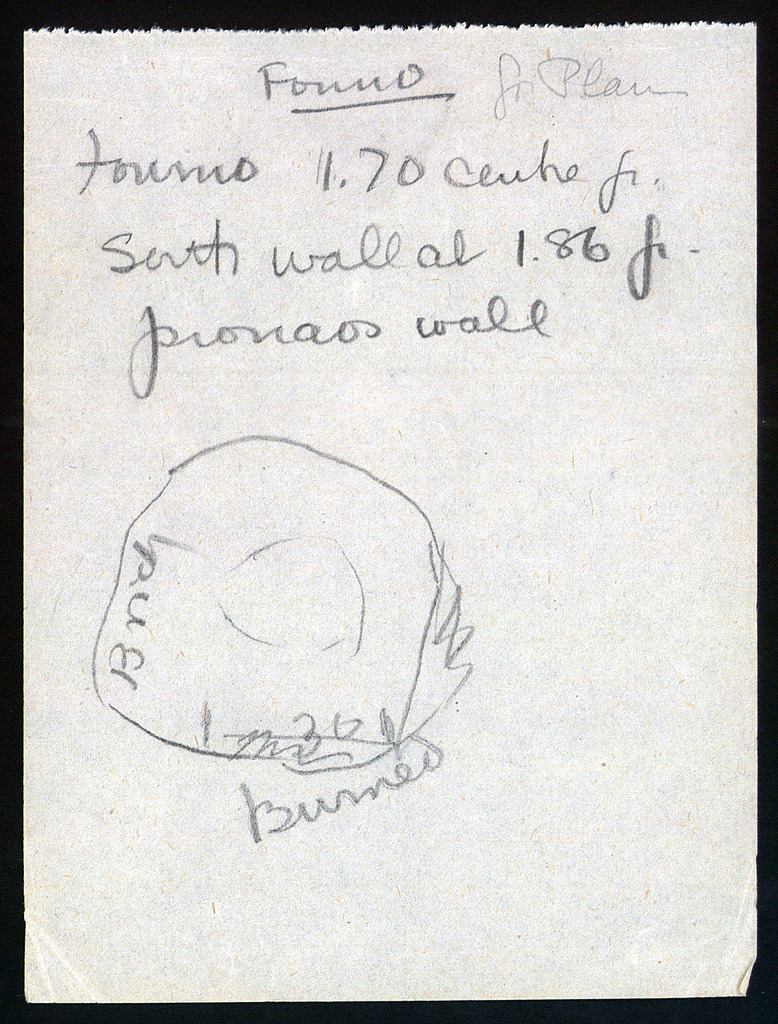 Fourno fr. Plan
fourno 1.70 centre fr.
South wall at 1.86 fr.
pronaos wall
Burnt
1 - 20
Burned